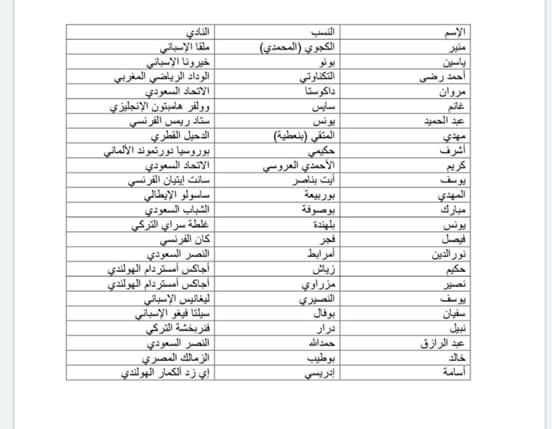 الإسم النسب النادي
منير الكجوي (المحمدي) ملقا الإسباني
ياسين بونو خيرونا الإسباني
أحمد رضى التكناوتي الوداد الرياضي المغربي
مروان داكوستا الاتحاد السعودي
غانم سايس وولفر هامبتون الإنجليزي
عبد الحميد يونس ستاد ريمس الفرنسي
مهدي المتقي (بنعطية) الدحيل القطري
أشرف حكيمي بوروسيا دورتموند الألماني
كريم الأحمدي العروسي الاتحاد السعودي
يوسف آيت بناصر سانت إيتيان الفرنسي
المهدي بوربيعة ساسولو الإيطالي
مبارك بوصوفة الشباب السعودي
يونس بلهندة غلطة سراي التركي
فيصل فجر كان الفرنسي
نورالدين أمرابط النصر السعودي
حكيم زياش أجاكس أمستردام الهولندي
نصير مزراوي أجاكس أمستردام الهولندي
يوسف النصيري ليغانيس الإسباني
سفيان بوفال سيلتا فيغو الإسباني
نبيل درار فنربخشة التركي
عبد الرازق حمدالله النصر السعودي
خالد بوطيب الزمالك المصري
أسامة إدريسي إي زد ألكمار الهولندي